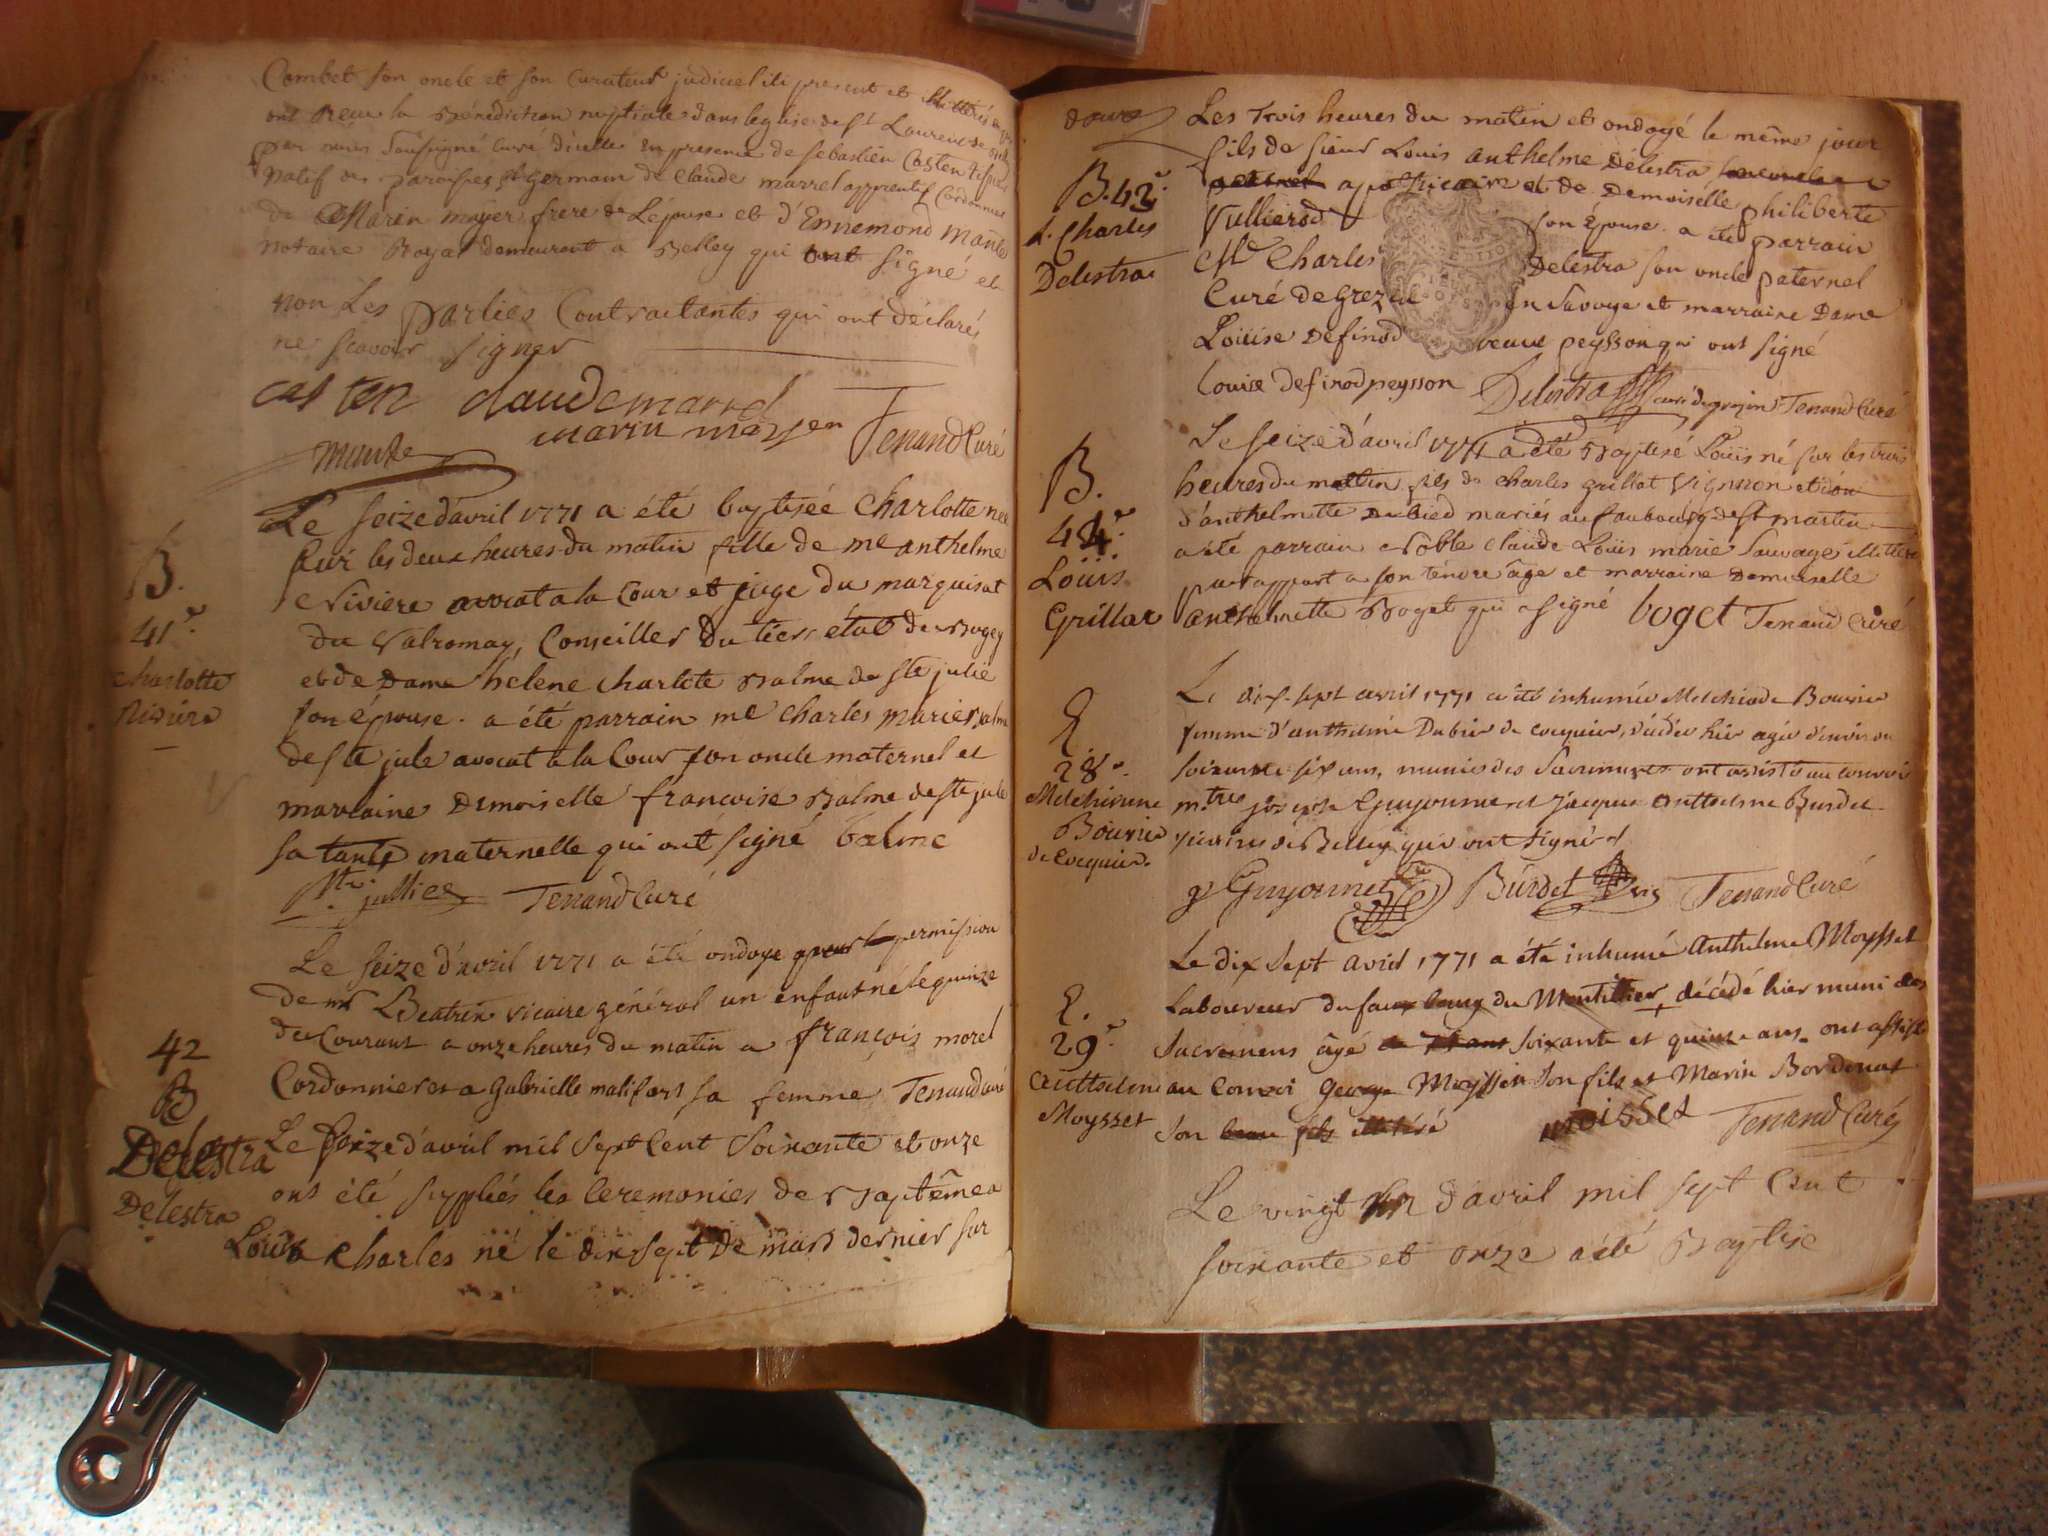 Combet son oncle et son Curateur judiciel ici present et
ont Reçu la Bénédiction nuptiale dans leglise de St Laurent
par nous soussigné Curé d'icelle en presence de sebastien Casten
natif des paroisses St germain de Claude marrel apprentif Cordonnier
de Marin mayer frere de Lépouse et d'Ennemond
notaire Royal demeurant a Belley qui ont signé et
non Les parties Contractantes qui ont déclarés
ne scavoir signer
casten claude marrel
marin
Tenand Curé
Le seize d'avril 1771 a été baptisée Charlotte nee
sur les deux heures du matin fille de me anthelme
Niviere avocat a la Cour et juge du marquisat
du Valromay, Conseiller du tiers état de Bugey
et de Dame hélene charlote Balme de ste julie
son épouse. a été parrain me charles marie Balme
de ste julie avocat a la Cour son oncle maternel et
marraine Demoiselle francoise Balme de ste julie
sa tante maternelle qui ont signé balme
Tenand Curé
B.
41e.
Charlotte
Niviere
Le seize d'avril 1771 a été ondoye permission
de mr vicaire général un enfant né le quinze
du Courant a onze heures du matin a françois morel
Cordonnier et a Gabrielle malifort sa femme Tenand curé
Le seize d'avril mil sept Cent soixante et onze
ont été suppléés les Ceremonies de Baptême a
Louis Charles né le dix sept de mars dernier sur
42
B
Delestra
Delestra
Les trois heures du matin et ondoyé le même jour
fils de sieur Louis anthelme Délestra
apothicaire et de Demoiselle philiberte
Vullierod son épouse. a été parrain
Mre Charles Delestra son oncle paternel
Curé de Grezin en Savoye et marraine Dame
Louise Definod veuve peysson qui ont signé
Louise definod peysson Delestra curé de grezin Tenand Curé
B. 43e.
L. Charles
Delestra
Le seize d'avril 1771 a été Baptisé Louis né sur les trois
heures du matin fils de Charles grillat Vigneron et
d'anthelmette Dubied mariés au faubourg de St martin
a été parrain Noble Claude Louis marie Sauvage
par rapport a son tendre âge et marraine Demoiselle
anthelmette Boget qui a signé boget Tenand Curé
B.
44e.
Louis
Grillat
Le dix-sept avril 1771 a été inhumée Bouvier
femme d'anthelme Dubier de coequier, décédée hier agée d'environ
soixante six ans, munie des Sacremens ont assisté au convoi
mtres joseph Guyonnet et jacque anthelme Burdet
de Belley qui ont signé
Guyonnet Burdet Tenand Curé
28e.
Bouvier
Le dix sept avril 1771 a été inhumé Anthelme Moysset
Laboureur du faux bourg du Montillier, décédé hier muni des
Sacremens âgé de soixante et quinze ans. ont assisté
au Convoi George Moysset son fils et Marin Bordonat
son beau fils illitéré moisset Tenand Curé
29e
Anthelme
Moysset
Le vingt d'avril mil sept Cent
soixante et onze a été Baptisé